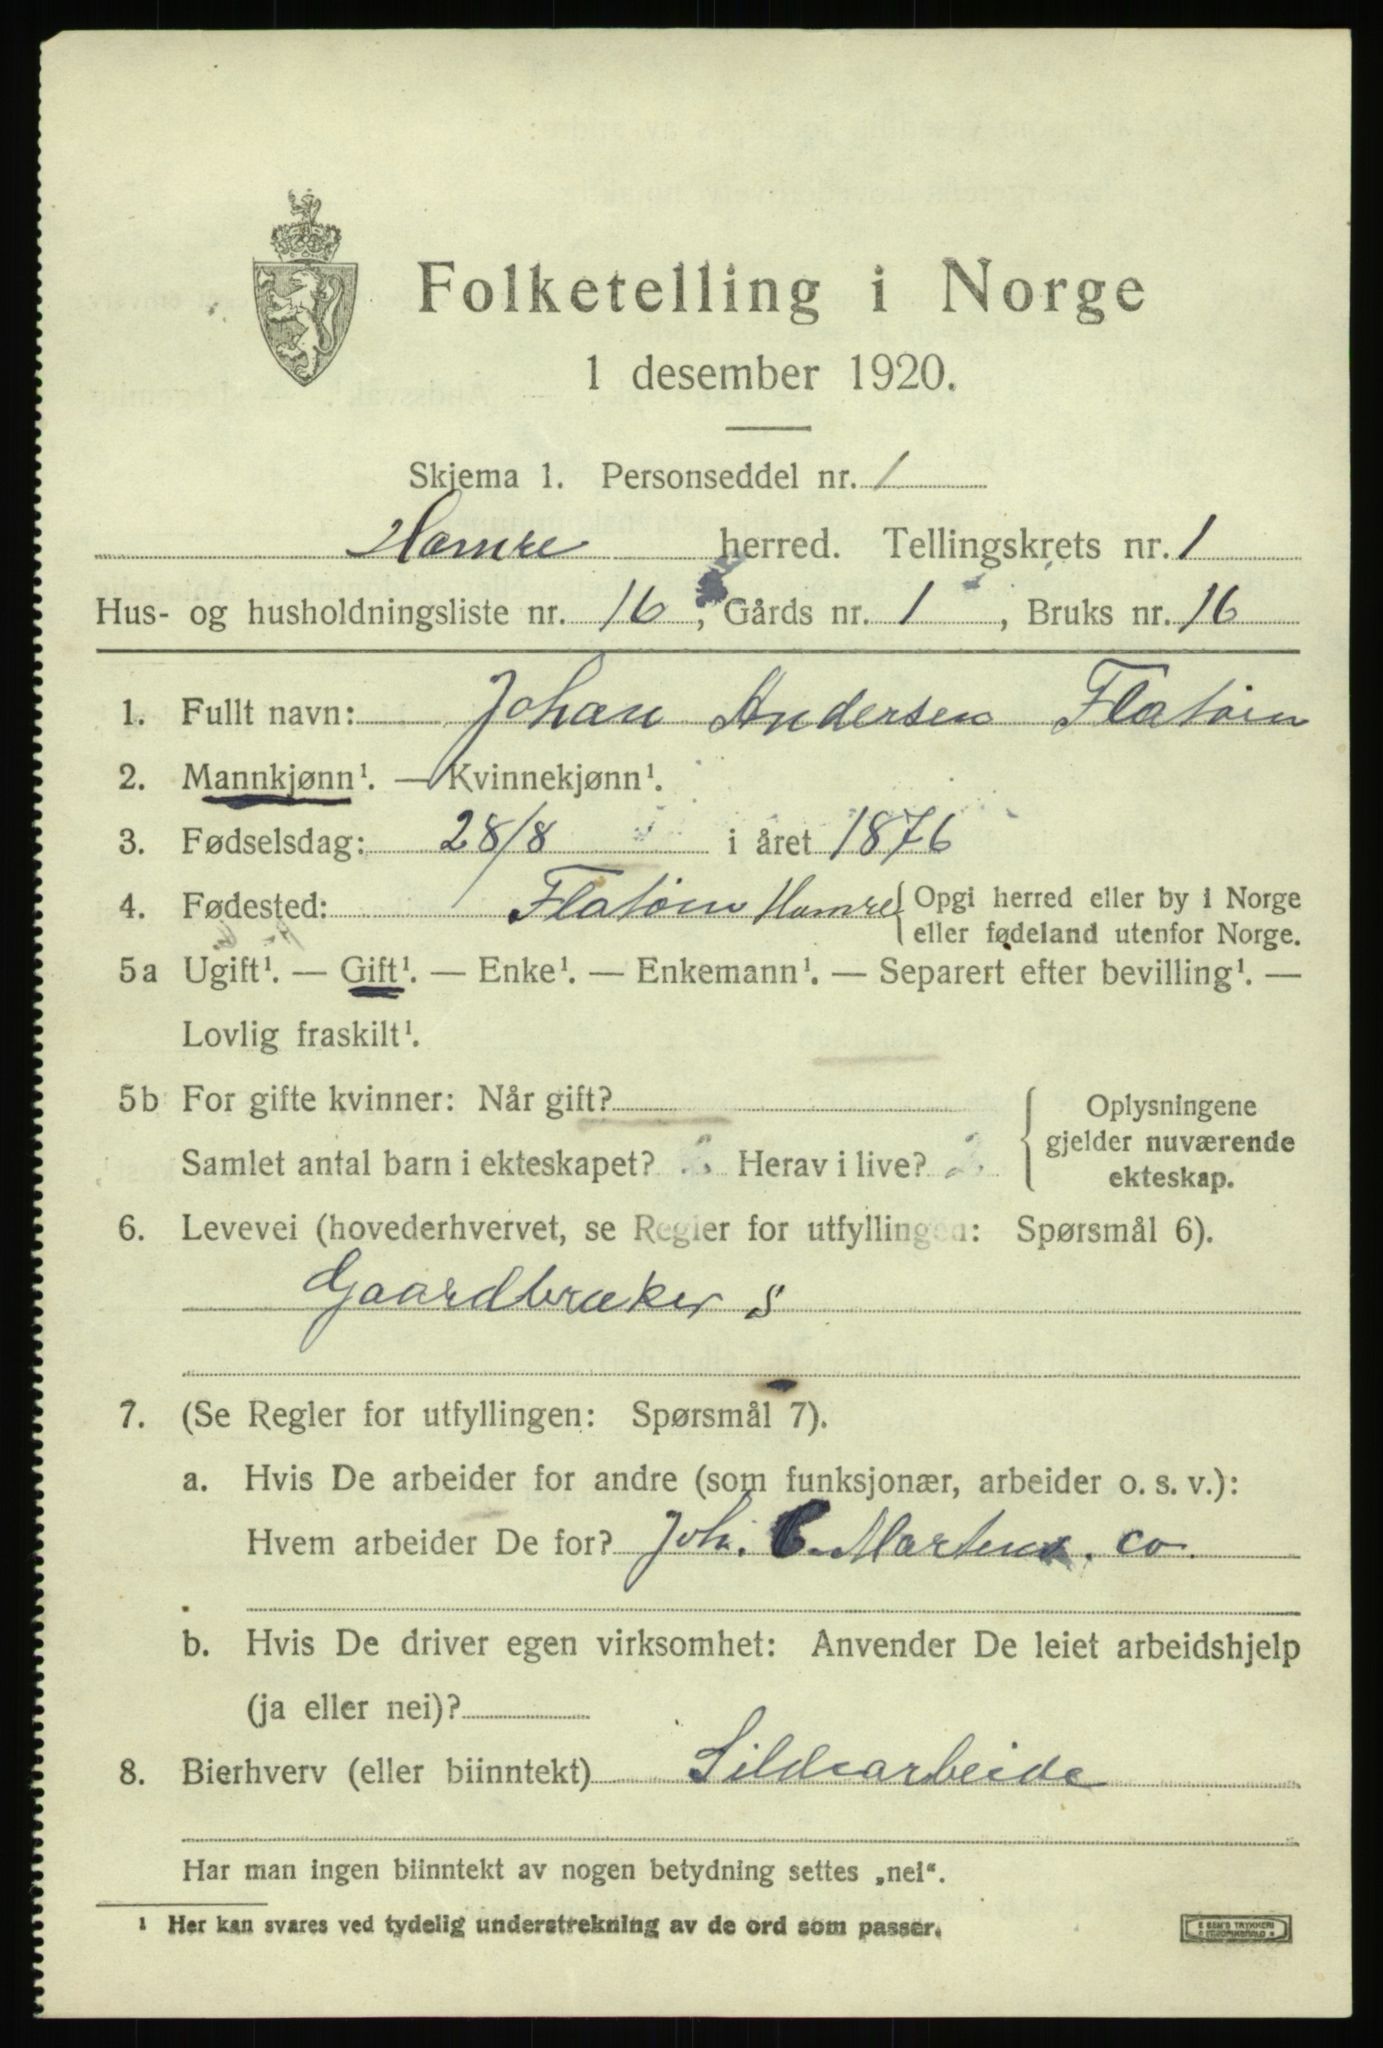 Folketelling i Norge
1 desember 1920.
Skjema 1. Personseddel nr. 1
Hamre herred. Tellingskrets nr. 1
Hus- og husholdningsliste nr. 16, Gårds nr. 1, Bruks nr. 16
1. Fullt navn: Johan Andersen Flatøin
2. Mannkjønn¹. — Kvinnekjønn¹.
3. Fødselsdag: 28/8 i året 1876
4. Fødested: Flatøin Hamre { Opgi herred eller by i Norge
eller fødeland utenfor Norge.
5a Ugift¹. — Gift¹. — Enke¹. — Enkemann¹. — Separert efter bevilling¹. —
Lovlig fraskilt¹.
5b For gifte kvinner: Når gift?
Samlet antal barn i ekteskapet? 2 Herav i live? 2
Oplysningene
gjelder nuværende
ekteskap.
6. Levevei (hovederhvervet, se Regler for utfyllingen: Spørsmål 6).
Gaardbruker s
7. (Se Regler for utfyllingen: Spørsmål 7).
a. Hvis De arbeider for andre (som funksjonær, arbeider o. s. v.):
Hvem arbeider De for? Joh. C. Martens. co
b. Hvis De driver egen virksomhet: Anvender De leiet arbeidshjelp
(ja eller nei)?
8. Bierhverv (eller biinntekt) Sildearbeide
Har man ingen biinntekt av nogen betydning settes „nei“.
¹ Her kan svares ved tydelig understrekning av de ord som passer.